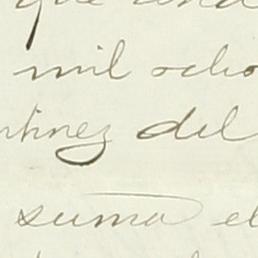 que
mil ocho
rtinez del
suma el